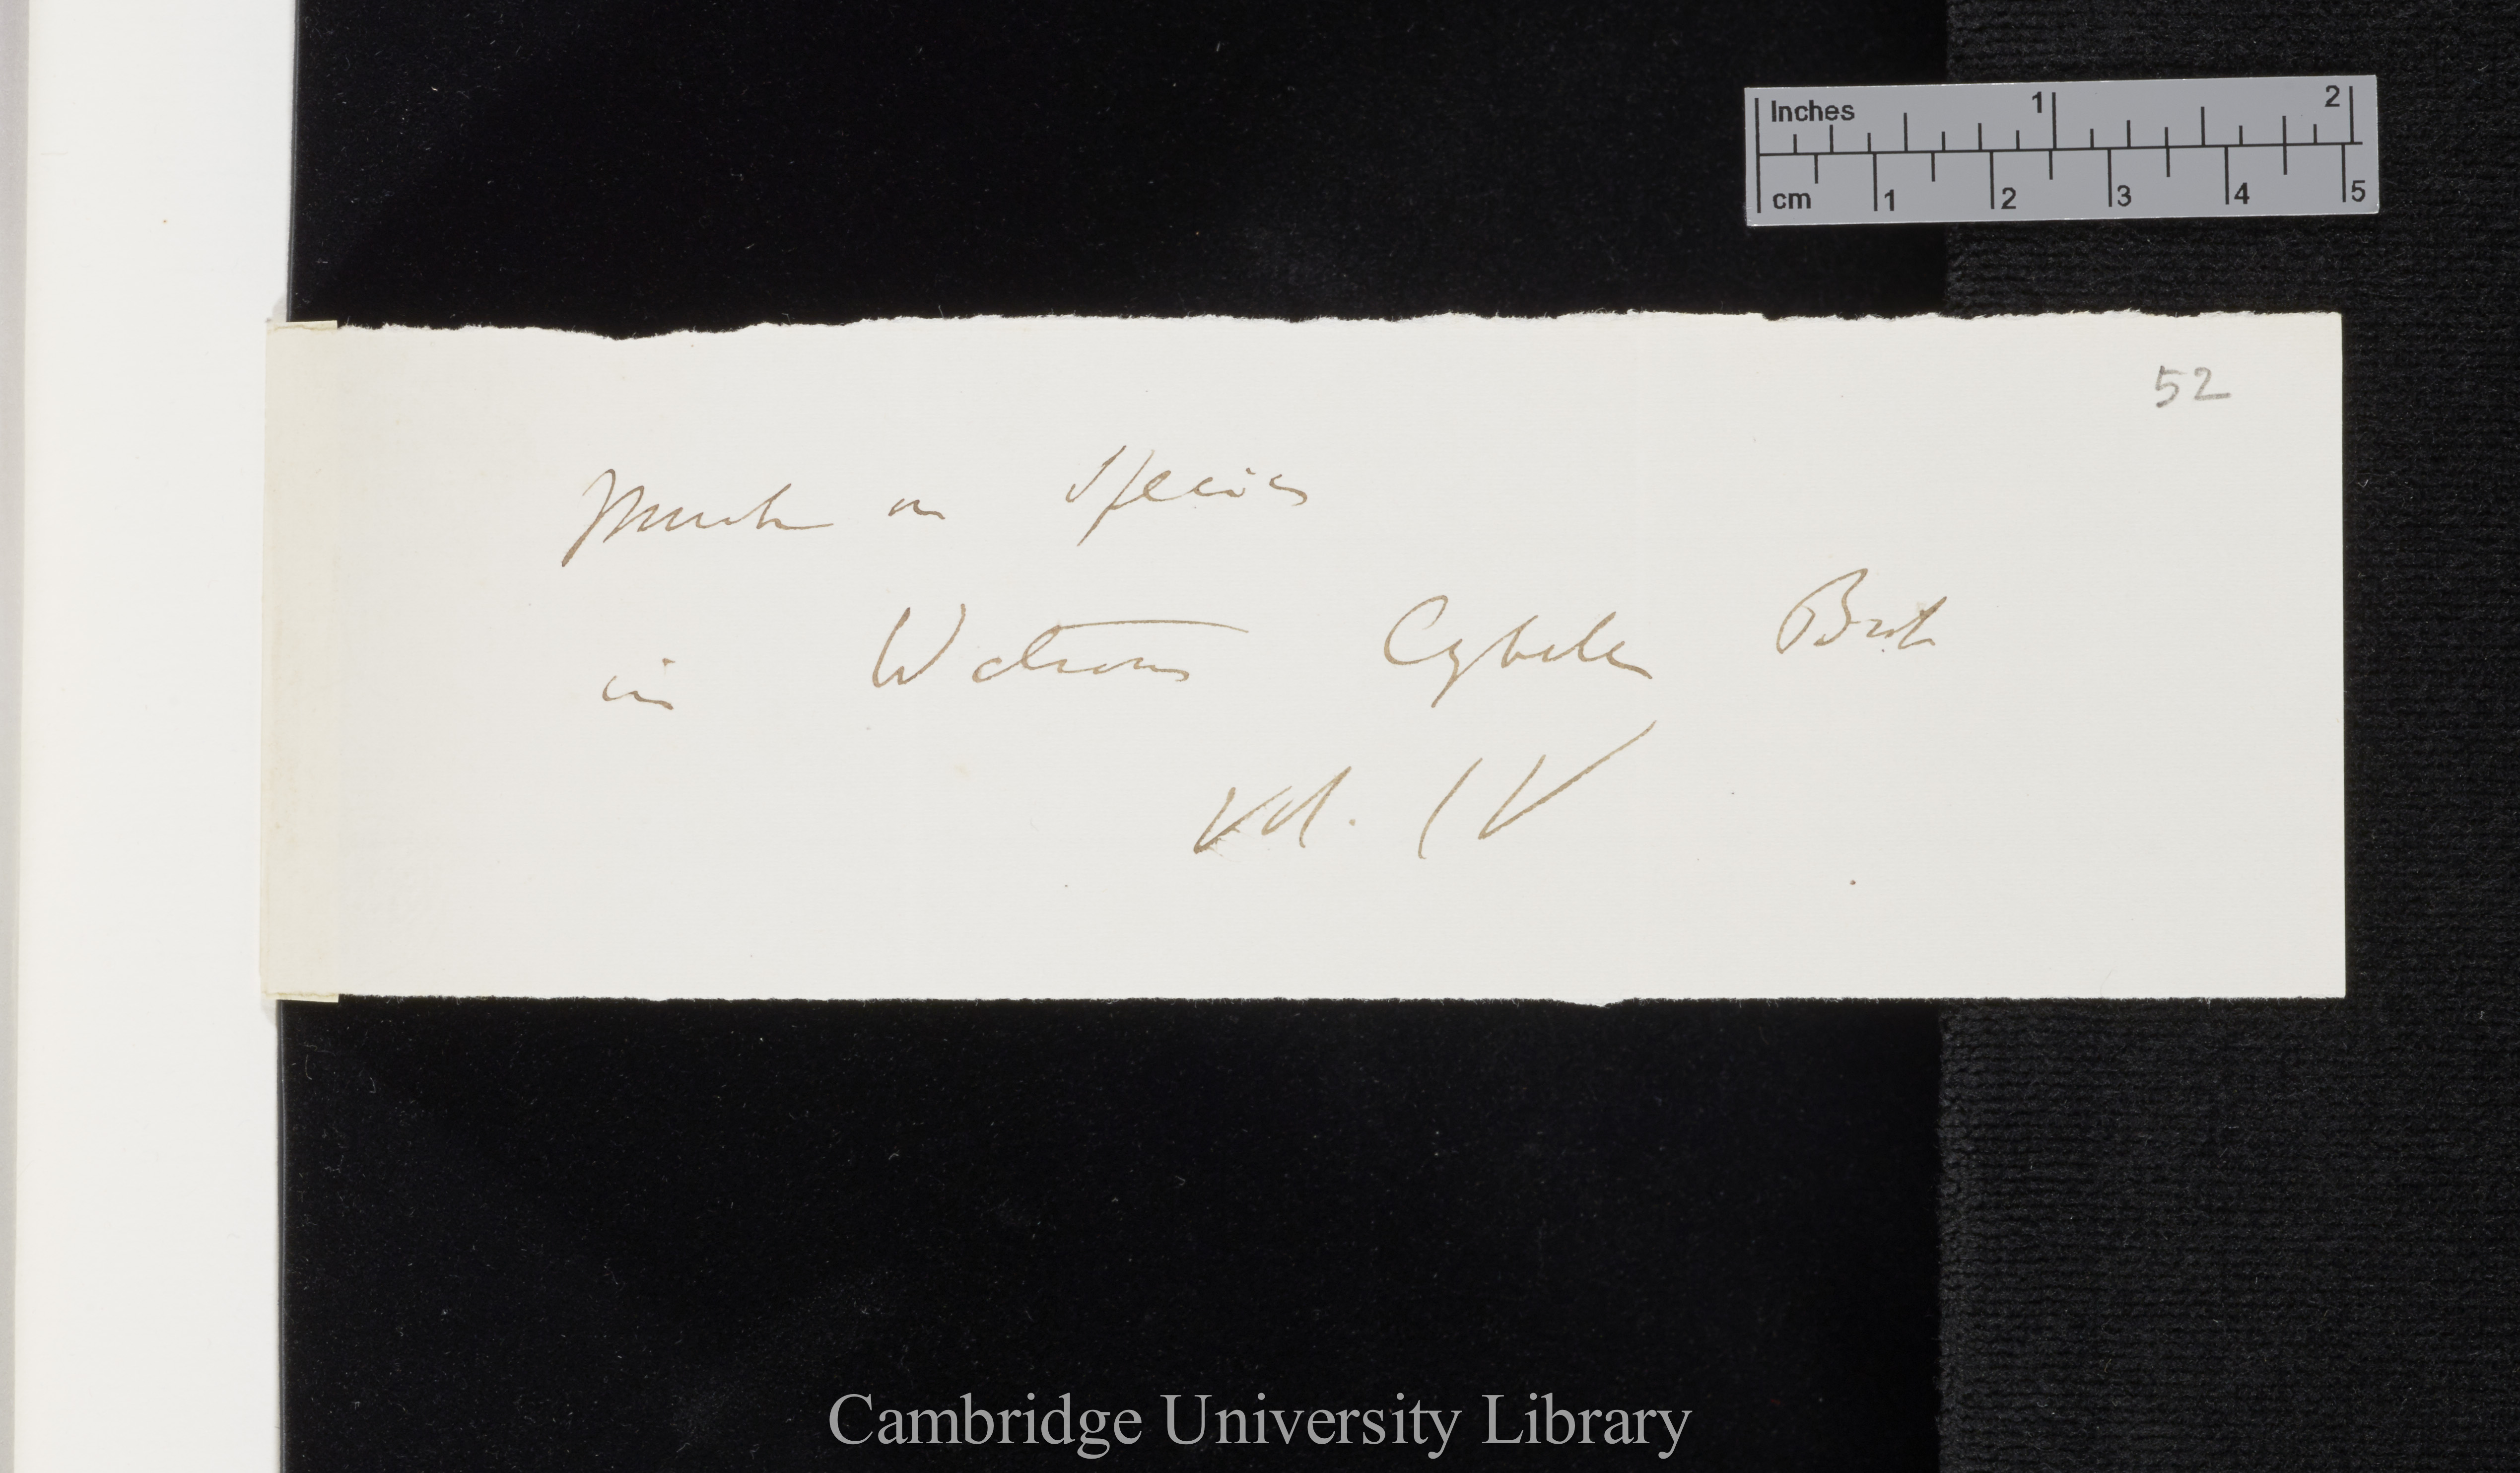 Inches 1 2
cm 1 2 3 4 5
52
Much on Species
in Watsons Cybele Brit
Vol. IV
Cambridge University Library